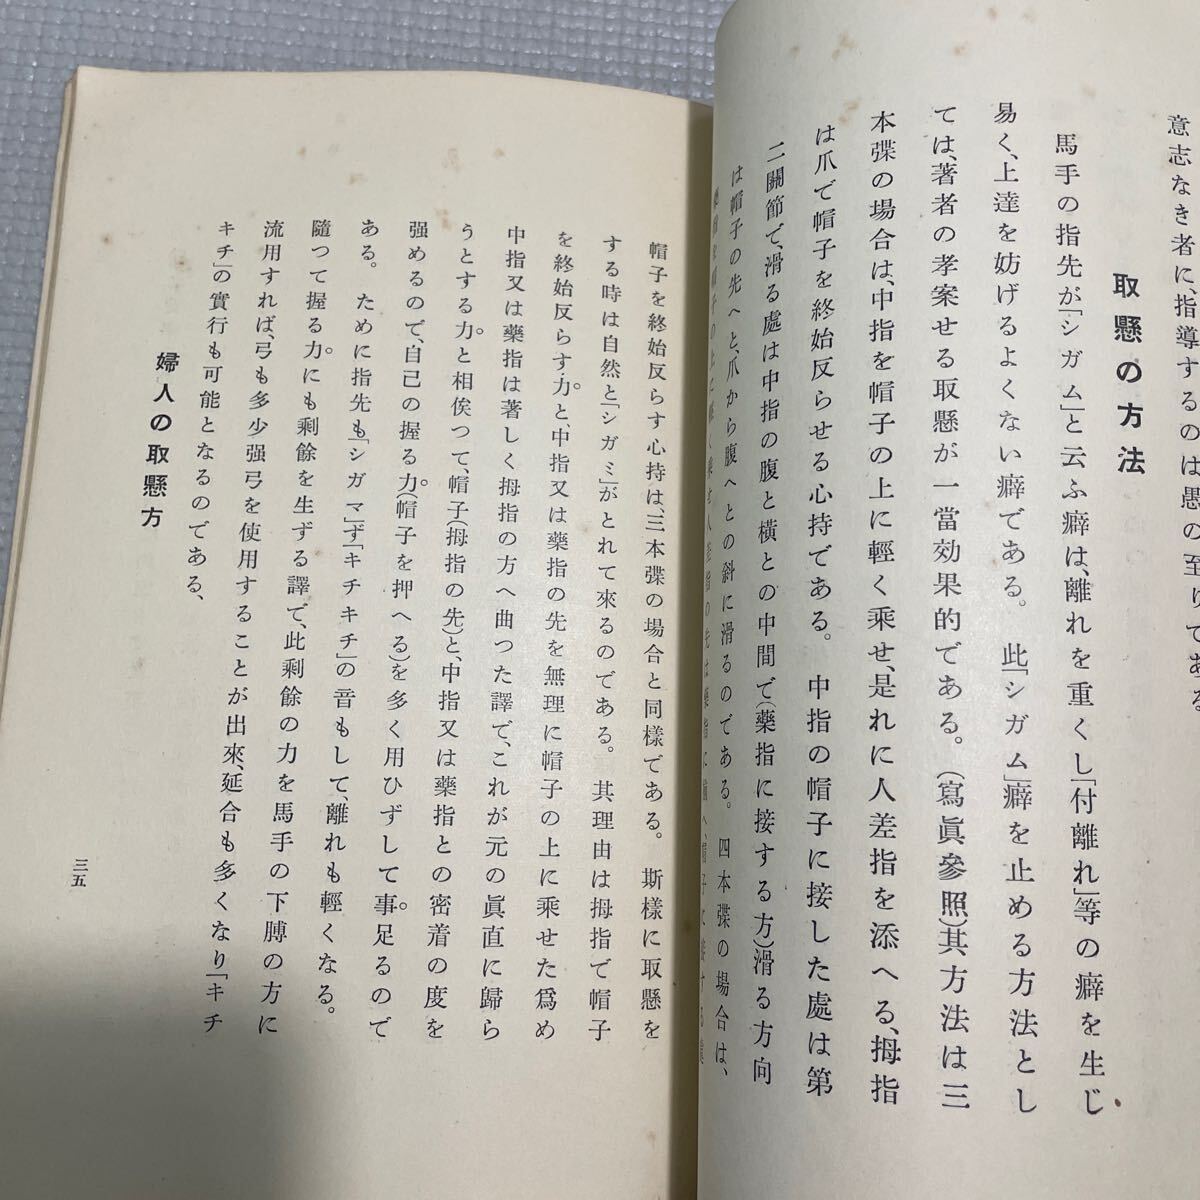 意志なき者に、指導するのは愚の至りである
取懸の方法
馬手の指先が「シガム」と云ふ癖は、離れを重くし「付離れ」等の癖を生じ
易く、上達を妨げるよくない癖である。此「シガム」癖を止める方法とし
ては、著者の孝案せる取懸が一當効果的である。(寫眞參照)其方法は三
本弽の場合は、中指を帽子の上に輕く乘せ、是れに人差指を添へる、拇指
は爪で帽子を終始反らせる心持である。中指の帽子に接した處は第
二關節で、滑る處は中指の腹と横との中間で(藥指に接する方)滑る方向
は帽子の先へと、爪から腹へとの斜に滑るのである。四本弽の場合は、
帽子を終始反らす心持は、三本弽の場合と同樣である。斯樣に取懸を
する時は自然と「シガミ」がとれて來るのである。其理由は拇指で帽子
を終始反らす力と、中指又は藥指の先を無理に帽子の上に乘せた爲め
中指又は藥指は著しく拇指の方へ曲つた譯で、これが元の眞直に歸ら
うとする力と相俟つて、帽子(拇指の先)と、中指又は藥指との密着の度を
强めるので、自己の握る力(帽子を押へる)を多く用ひずして事足るので
ある。ために指先も「シガマ」ず「キチキチ」の音もして、離れも輕くなる。
隨つて握る力にも剩餘を生ずる譯で、此剩餘の力を馬手の下膊の方に
流用すれば、弓も多少强弓を使用することが出來、延合も多くなり「キチ
キチ」の實行も可能となるのである、
婦人の取懸方
三五